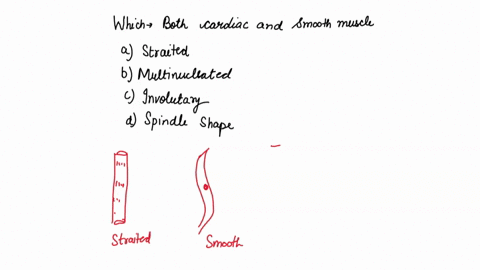 Which→ Both cardiac and Smooth muscle
a) Straited
b) Multinucleated
c) Involutary
d) Spindle Shape
Straited Smooth